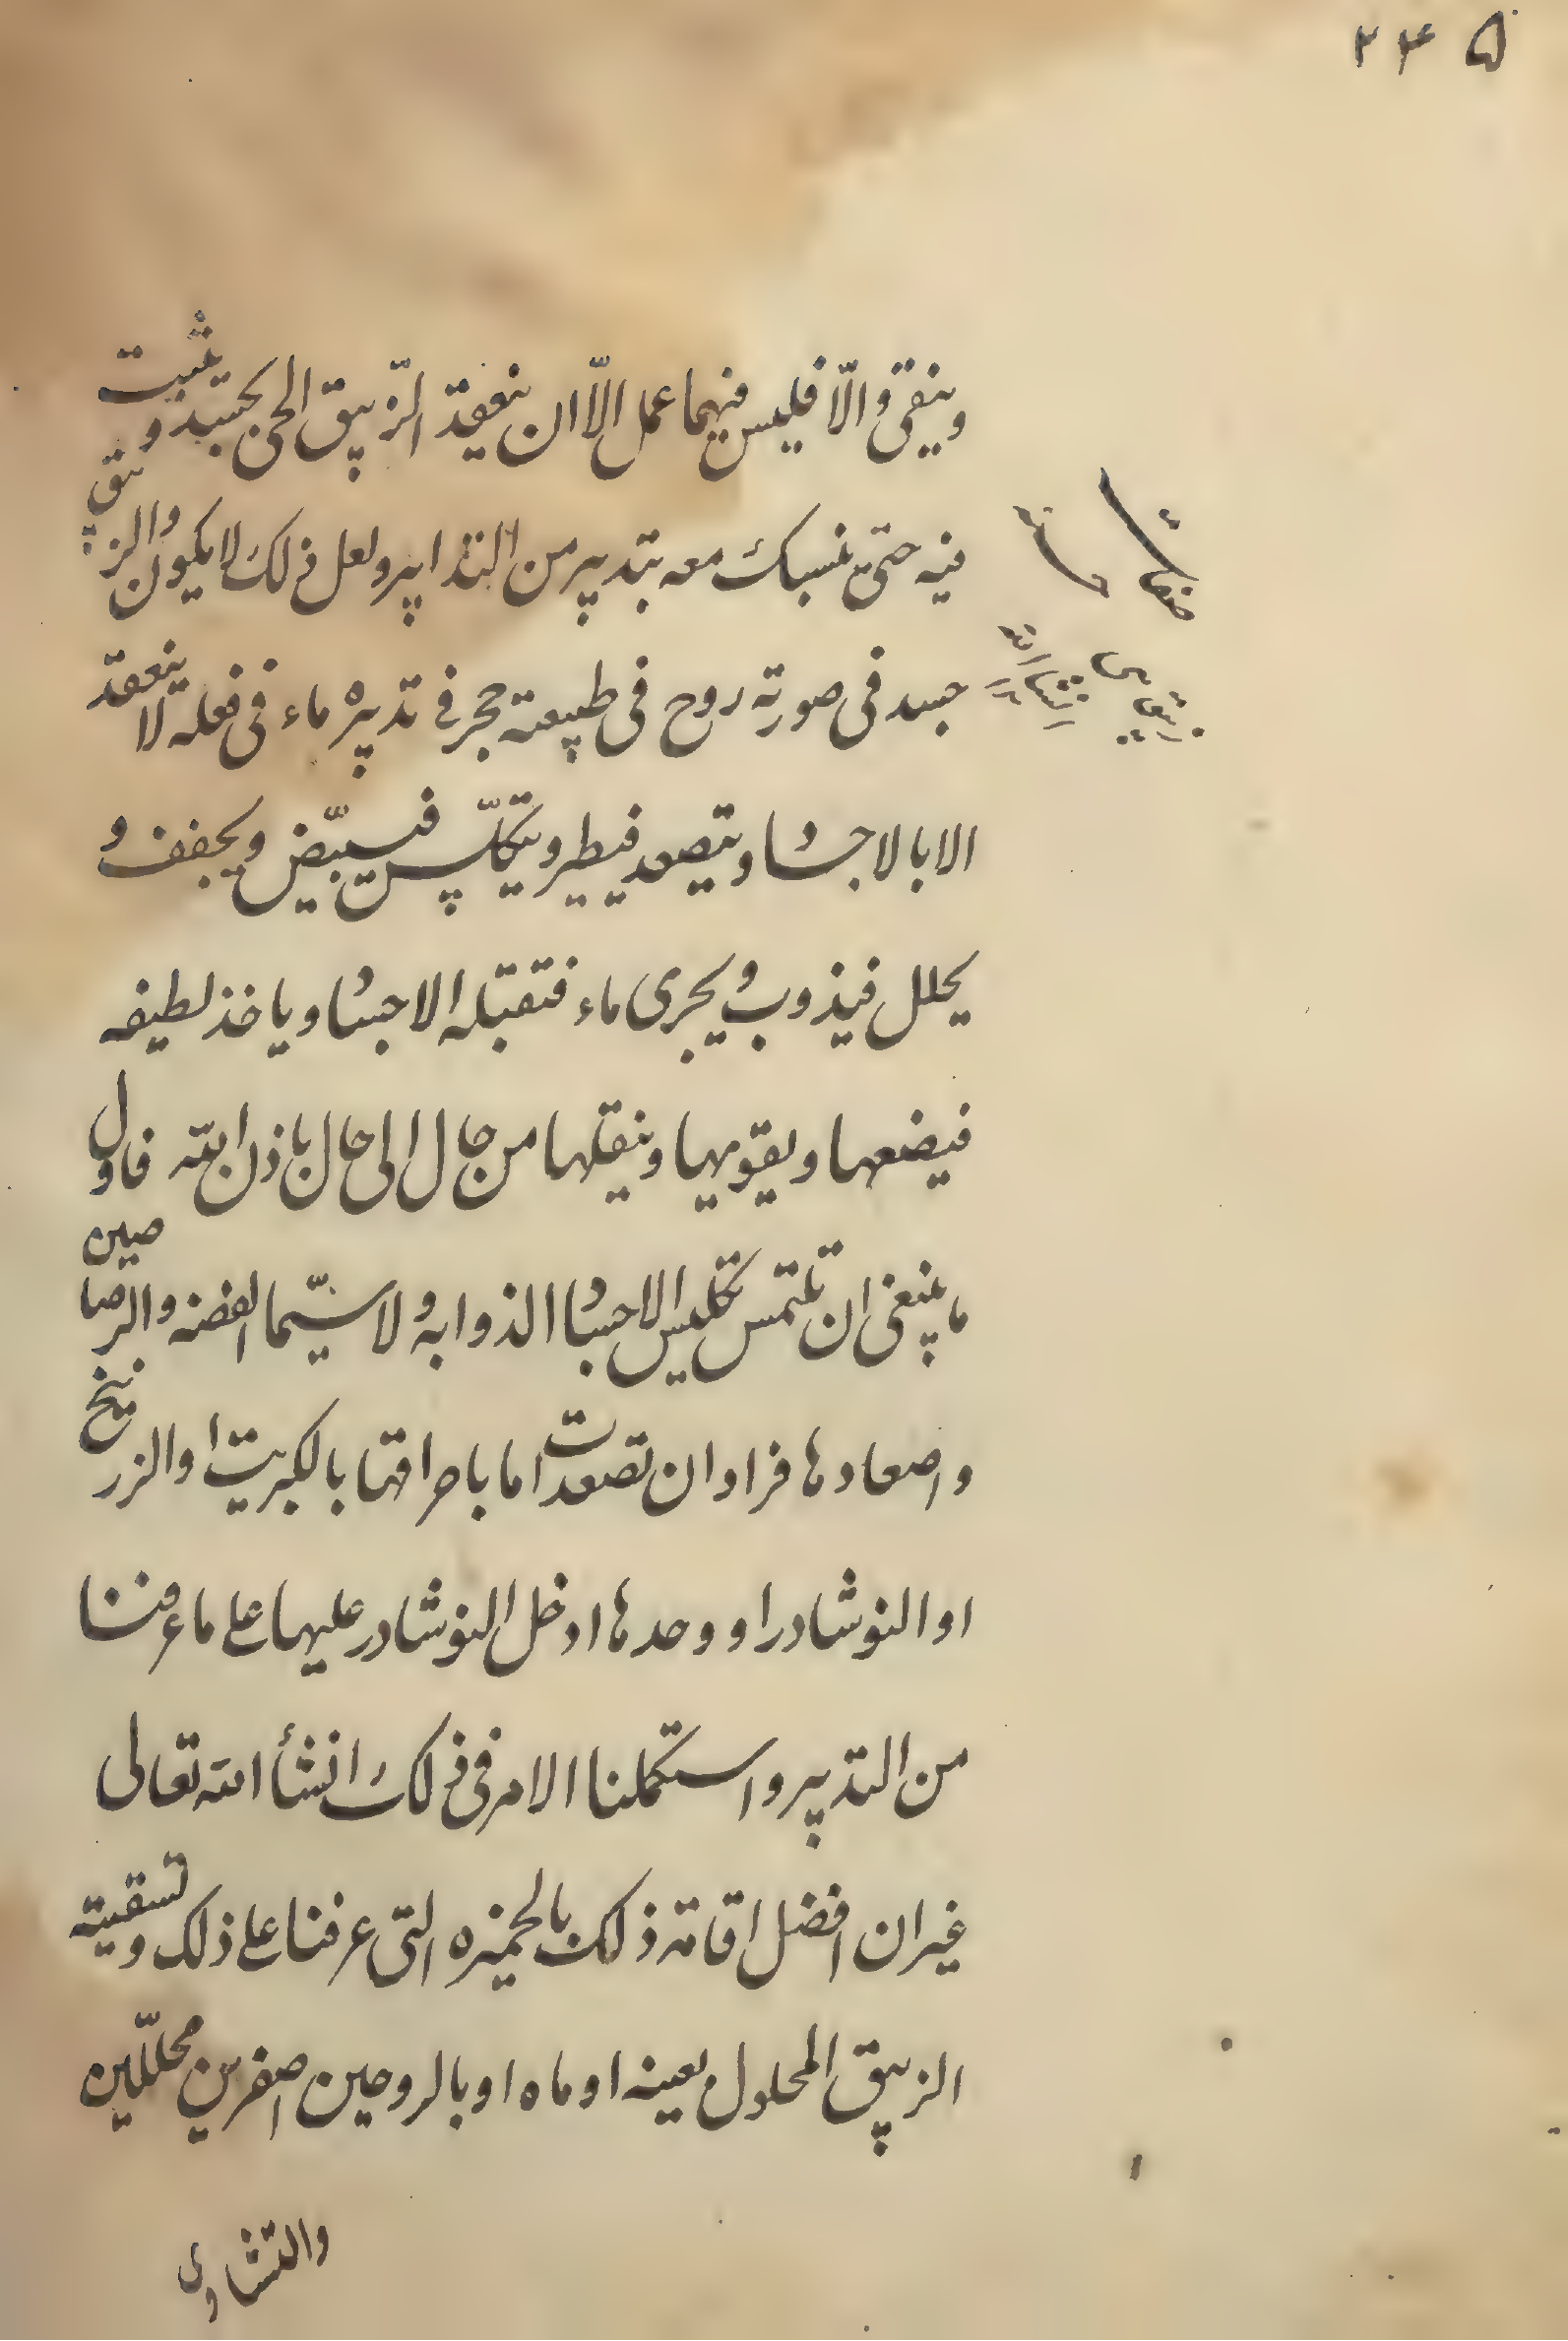 ۲۴۵
وينقى والّا فليس فيهما عمل الّا ان ينعقد الزّيبق الحى بجسد ويثبت
فيه حتى ينسبك معه بتدبير من التدابير ولعل ذلك لا يكون والزيبق
جسد فى صورته روح فى طبيعته حجر فى تدبيره ماء فى فعله لا ينعقد
الا بالاجساد ويتصعد فيطير ويتكلّس فيبيّض ويجفف و
يحلل فيذوب ويجرى ماء فتقبله الاجساد وياخذ لطيفه
فيضعها ويقومها وينقلها من حال الى حال باذن الله فاول
ما ينبغى ان تلتمس تكليس الاجساد الذوابه ولا سيّما الفضه والرصاصين
واصعادها فرادا ان تصعدت اما باحراقها بالكبريت او الزرنيخ
او النوشادر او وحدها ادخل النوشادر عليها على ما عرفنا
من التدبير واستكملنا الامر فى ذلك انشأ الله تعالى
غير ان افضل اقامة ذلك بالخميره التى عرفنا على ذلك وتسقيته
الزيبق المحلول بعينه او ماه او بالروحين اصفرين محلّلين
والتشاوى